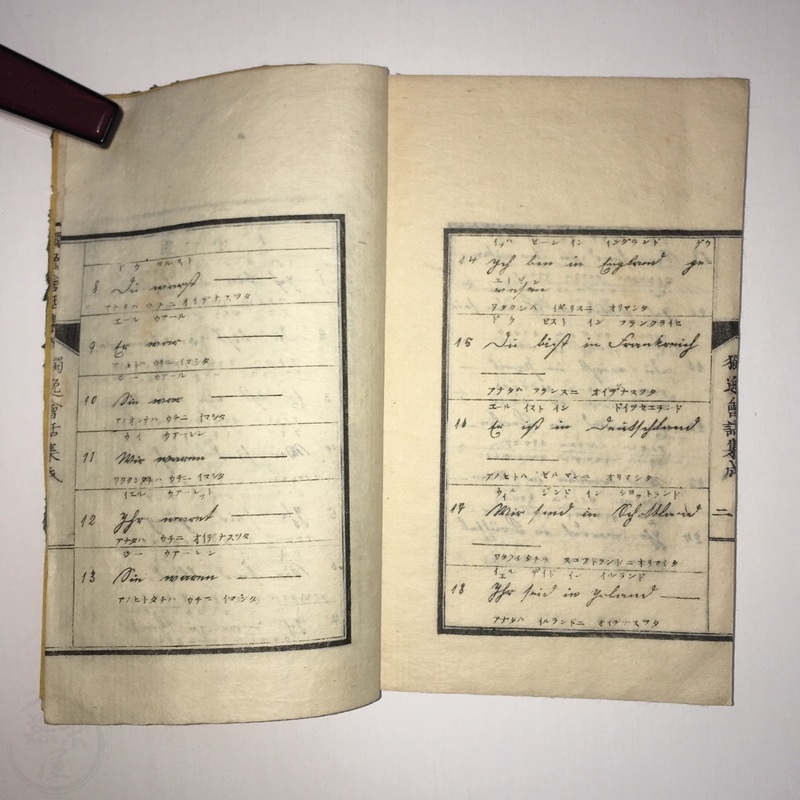 ドウ ワルスト
8 Du warst ———
アナタハ ウチニ オイデナスツタ
エール ウアール
9 Er war ———
アノヒトハ ウチニ イマシタ
ジー ウアール
10 Sie war ———
アノオンナハ ウチニ イマシタ
ウィ ウアーレン
11 Wir waren ———
ワタクシタチハ ウチニ イマシタ
イエル ウアーレット
12 Ihr waret ———
アナタハ ウチニ オイデナスツタ
ジー ウアーレン
13 Sie waren ———
アノヒトタチハ ウチニ イマシタ
獨逸會話集成
イッハ ビーン イン イングランド ゲウ
14 Ich bin in England ge=
wesen
ワタクシハ イギリスニ オリマシタ
ドウ ビスト イン フランクライヒ
15 Du bist in Frankreich
———
アナタハ フランスニ オイデナスツタ
エール イスト イン ドイツセエランド
16 Er ist in Deutschland
———
アノヒトハ ゼルマンニ オリマシタ
ウィル ジンド イン ショットランド
17 Wir sind in Schottland
———
ワタクシタチハ スコツトランドニ オリマシタ
イエル ザイド イン イルランド
18 Ihr seid in Irland ———
アナタハ イルランドニ オイデナスツタ
獨逸會話集成
二